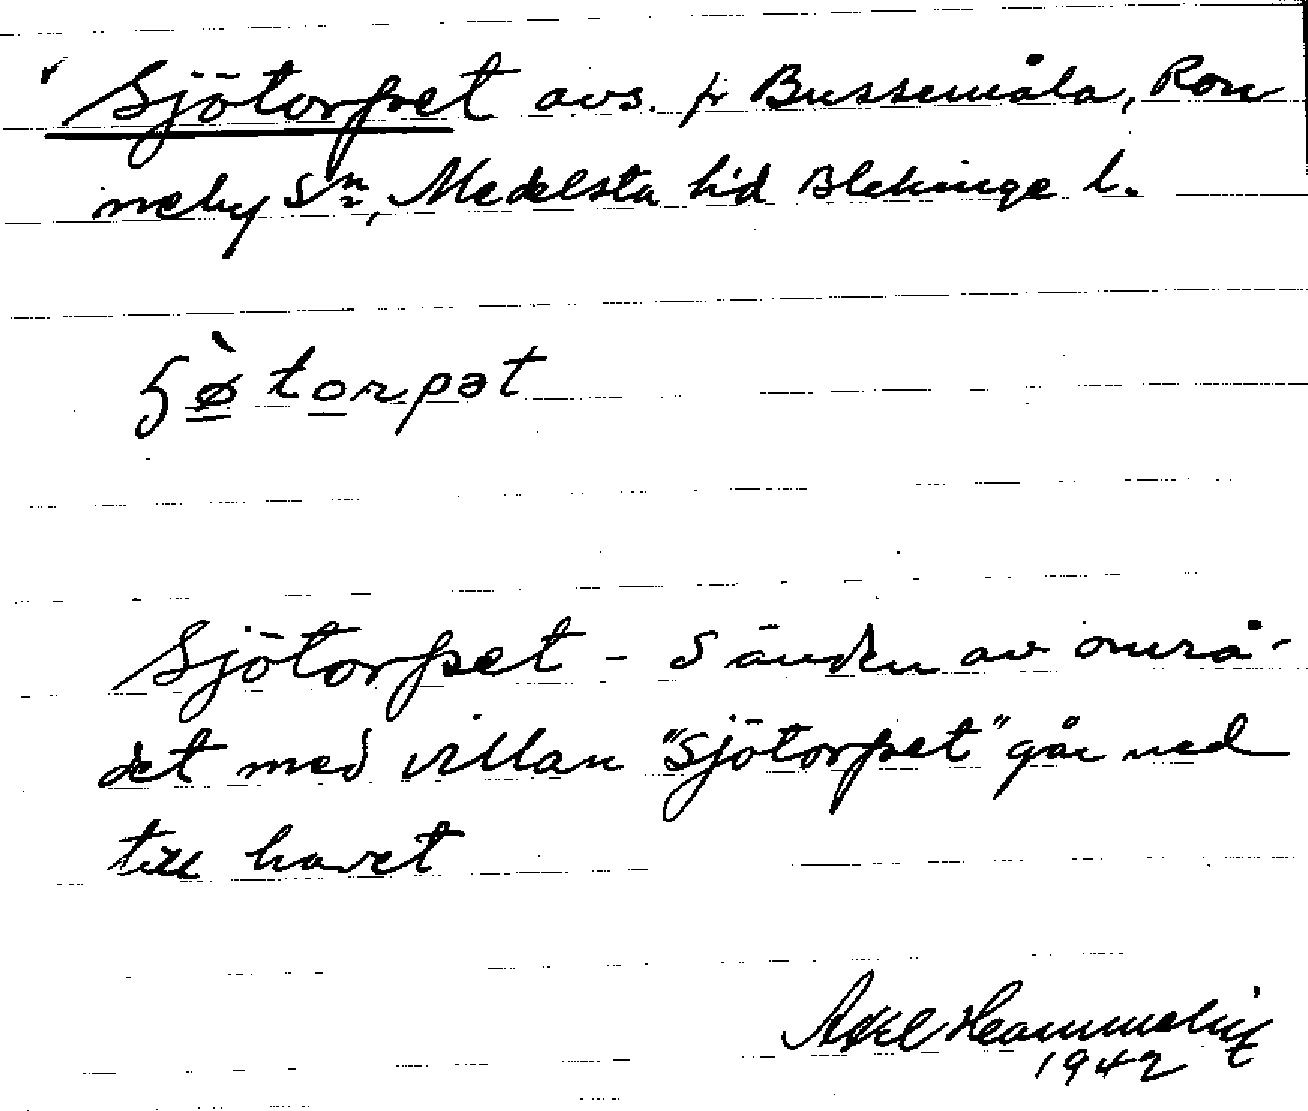 Sjötorpet avs. fr Bussemåla, Ron
neby Sn, Medelsta hd Blekinge l.
ʂø̀torpət
Sjötorpet - S änden av områ-
det med villan "Sjötorpet" går ned
till havet
Axel
1942